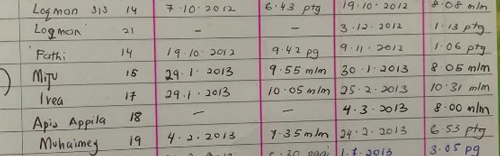 Logman SIS 14 7.10.2012 6.43 ptg 19.10.2012 8.08 mlm
Logman 21 - - 3.12.2012 1.13 ptg
Fathi 14 19.10.2012 9.42 pg 9.11.2012 1.06 ptg
Miju 15 29.1.2013 9.55 mlm 30.1.2013 8.05 mlm
Irea 17 29.1.2013 10.05 mlm 25.2.2013 10.31 mlm
Apis Appila 18 - - 4.3.2013 8.00 mlm
Muhaimey 19 4.2.2013 7.35 mlm 24.2.2013 6.53 ptg
1.7.2013 3.05 pg